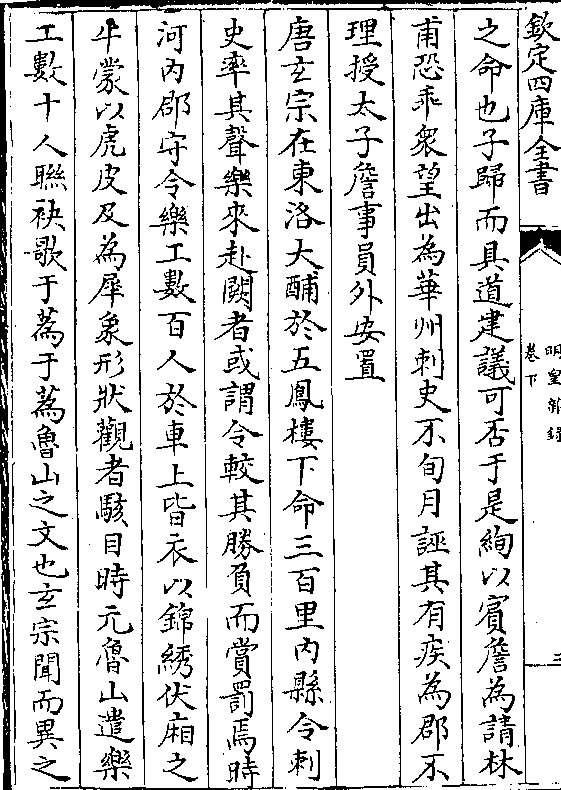 欽定四庫全書
明皇雜録
卷下
三
之命也子歸而具道建議可否于是絢以賓詹為請林
甫恐乖衆望出為華州刺史不旬月誣其有疾為郡不
理授太子詹事員外安置
唐玄宗在東洛大酺於五鳳樓下命三百里内縣令刺
史率其聲樂來赴闕者或謂令較其勝負而賞罰焉時
河内郡守令樂工數百人於車上皆衣以錦綉伏廂之
牛蒙以虎皮及為犀象形狀觀者駭目時元魯山遣樂
工數十人聯袂歌于蔿于蔿魯山之文也玄宗聞而異之